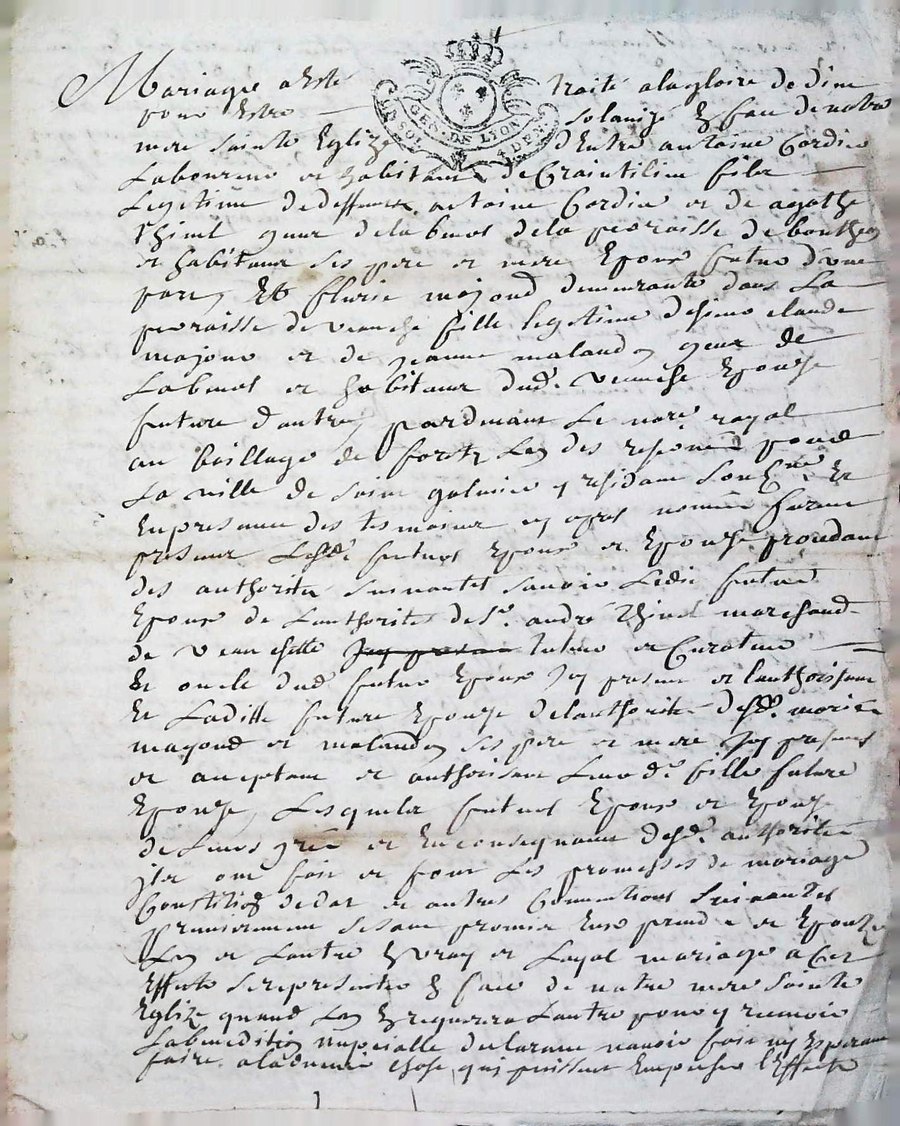 Mariage a Esté traité a la gloire de dieu
pour Estre solanizé En face de notre
mere Sainte Eglize d'Entre antoine Cordier
Laboureur et habitant de Craintilieu filx
Legitime de deffunct antoine Cordier et de agathe
Thinet de la parroisse de bouthen
et habitans ses pere et mere Epoux futur d'une
part, Et fleurie majoud demeurante dans La
parroisse de veauche fille legitime de sieur claude
majoux et de jeanne malandon de
Labeur et habitans dud. veauche Epouze
future d'autre, pardevant Le nore royal
au baillage de foretz Lun des reservé pour
La ville de Saint galmier y residant Sousné Et
En presence des tesmoins cy apres nommés furent
presents Lesds futurs Epoux et Epouze procedant
des authorites Suivantes Scavoir Ledit futur
Epoux de Lauthorité de Sr. andré Thinet marchand
de veauchette Tuteur et Curateur
Et oncle dud futur Epoux Icy present et l'authorisant
Et Laditte future Epouze de lauthorité desds. mariés
majoud et malandon ses pere et mere Icy presents
et acceptant et authorisant Leur de. fille future
Epouze, Lesquels futurs Epoux et Epouze
de Leurs grés et En consequance desds. authorités
ont fait et font Les promesses de mariage
Constition de dot et autres Conventions Suivantes
Premierement se sont promis Eux prendre et Epouzer
Lun et Lautre En vray et Loyal mariage a Cet
Effect se representer En face de notre mere Sainte
Eglize quand Lun En requerera Lautre pour y recevoir
La benediction nupcialle declarant navoir fait ny Esperant
faire aucune chose qui puissent Empecher l'Effect
GEN. DE LYON
SOL
DEN.